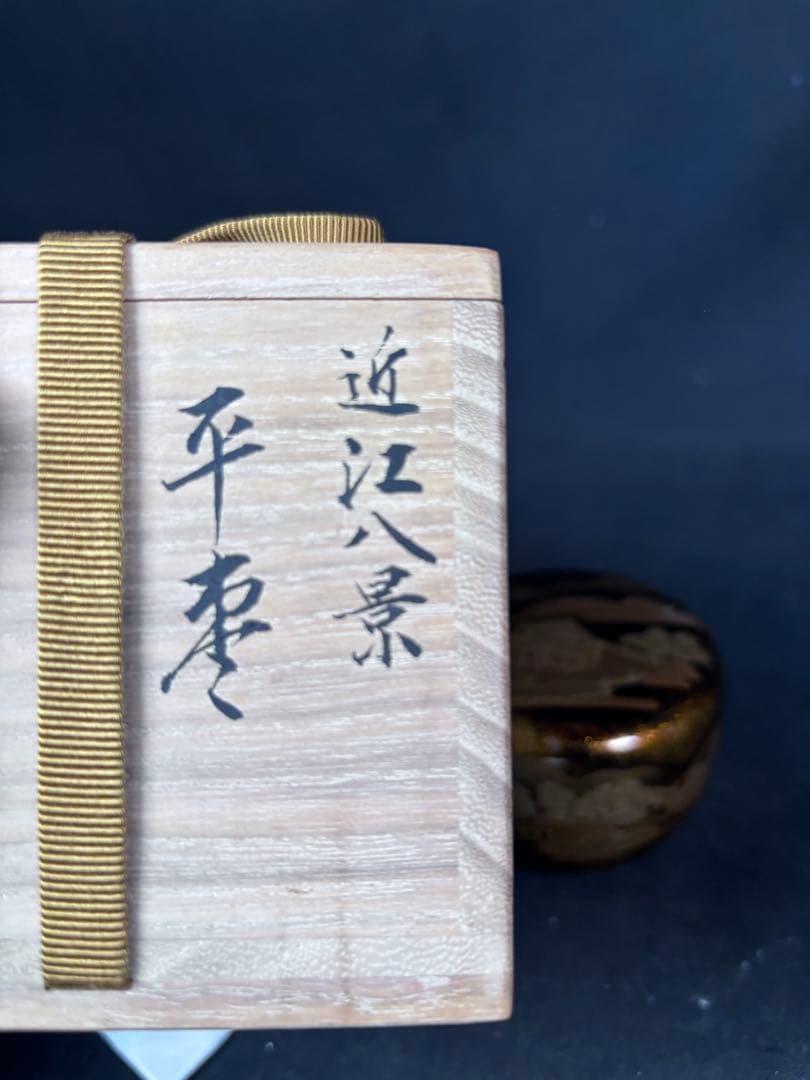 近江八景
平棗